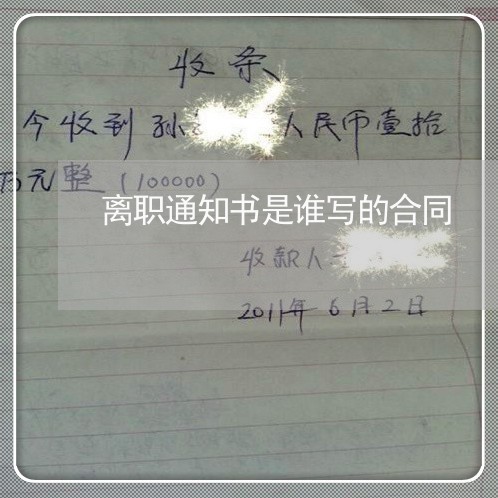 收条
今收到孙 人民币壹拾
万元整（100000）
离职通知书是谁写的合同
收款人
2011年6月2日